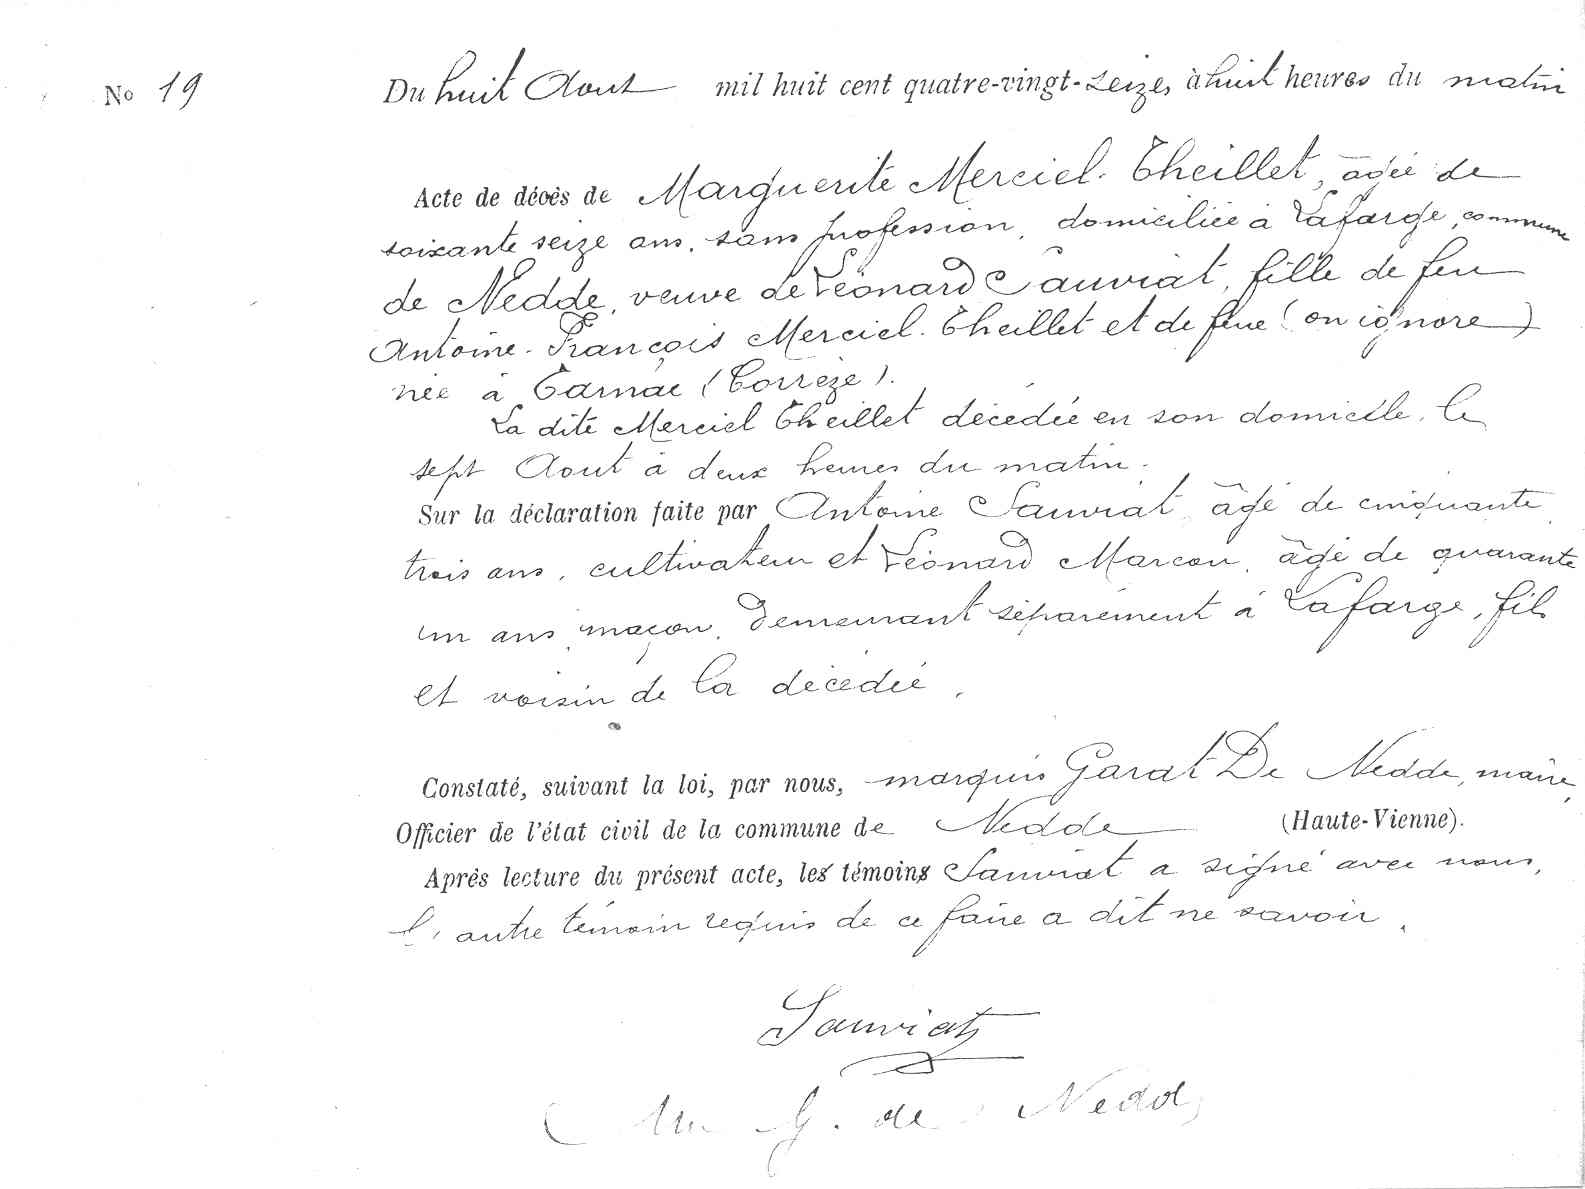 No 19
Du huit Aout mil huit cent quatre-vingt-seize, à huit heures du matin
Acte de décès de Marguerite Merciel-Theillet, âgée de
soixante seize ans, sans profession, domiciliée à Lafarge, commune
de Nedde, veuve de Léonard Sauviat, fille de feu
Antoine-François Merciel-Theillet et de feue (on ignore)
née à Tarnac (Corrèze).
La dite Merciel Theillet décédée en son domicile, le
sept Aout à deux heures du matin.
Sur la déclaration faite par Antoine Sauviat, âgé de cinquante
trois ans, cultivateur et Léonard Marcou, âgé de quarante
un ans, maçon, demeurant séparément à Lafarge, fils
et voisin de la décédée.
Constaté, suivant la loi, par nous, marquis Garat De Nedde, maire,
Officier de l'état civil de la commune de Nedde (Haute-Vienne).
Après lecture du présent acte, les témoins Sauviat a signé avec nous,
l'autre témoin requis de ce faire a dit ne savoir.
Sauviat
G. de Nedde